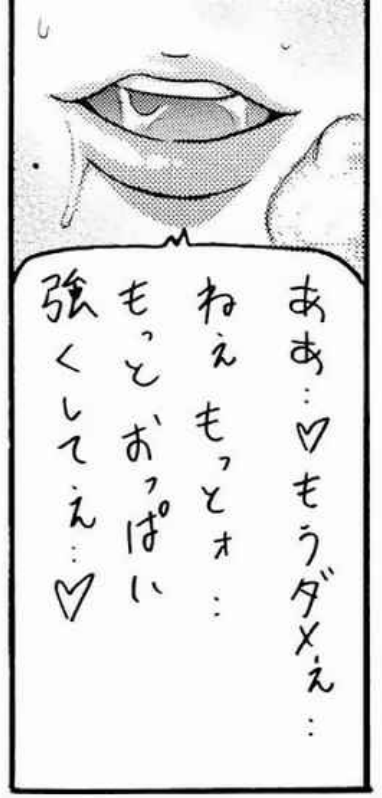 ああ…♡もうダメぇ…
ねぇもっとォ…
もっとおっぱい
強くしてぇ…♡